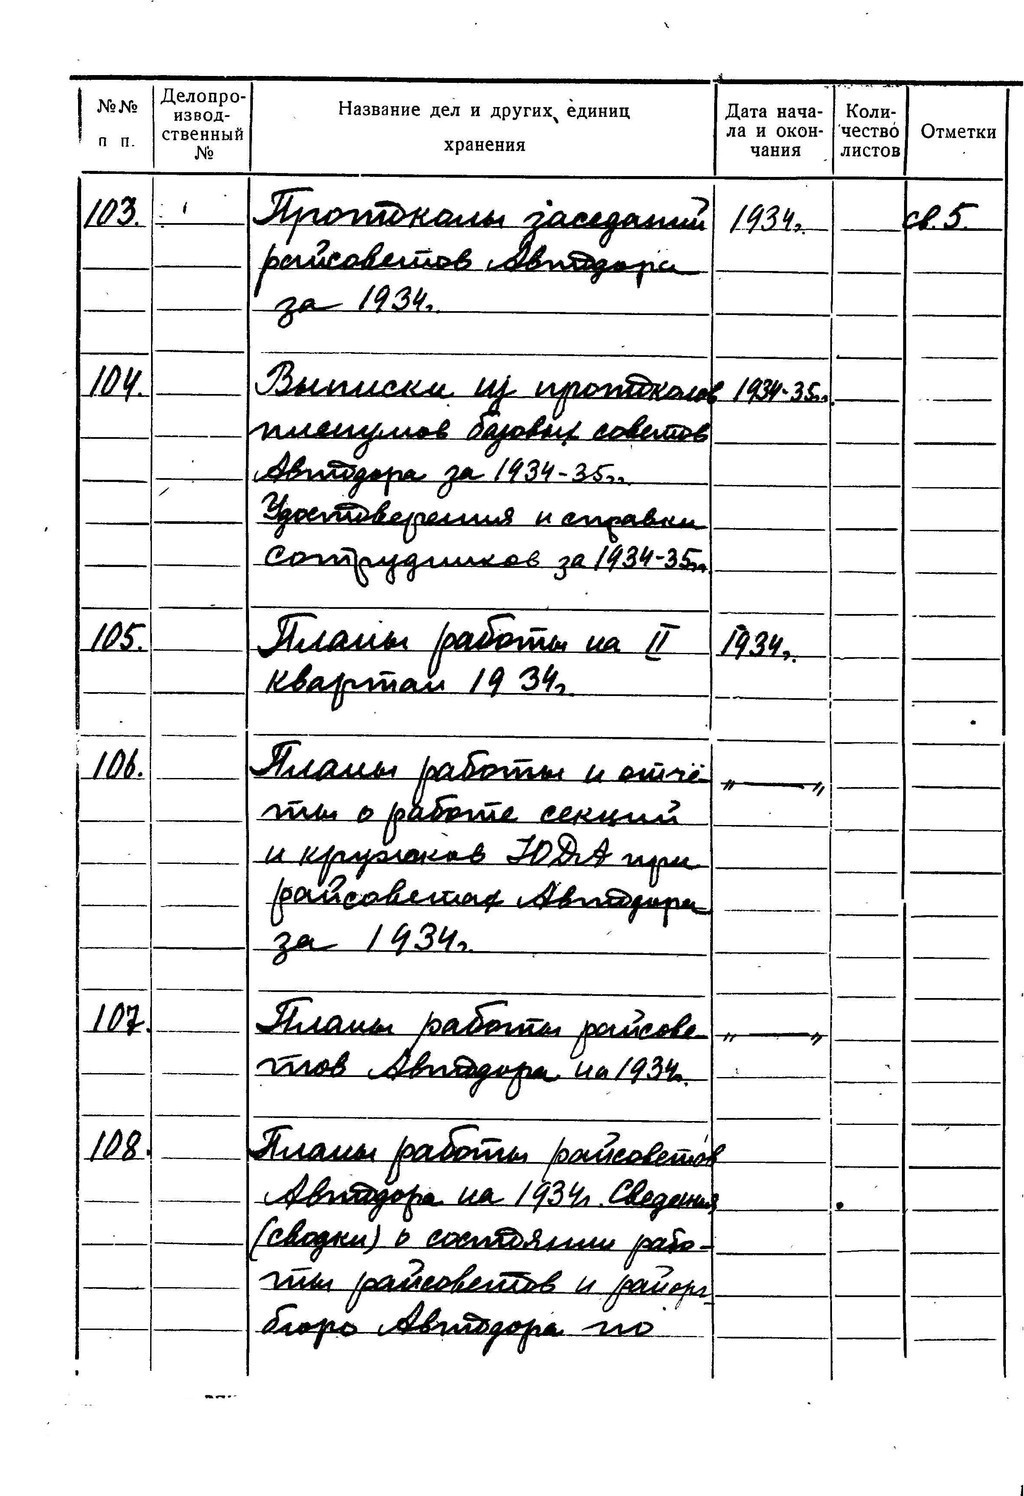 №№ п п.
Делопро-
извод-
ственный
№
Название дел и других единиц
хранения
Дата нача-
ла и окон-
чания
Коли-
чество
листов
Отметки
103. Протоколы заседаний 1934г. св.5.
райсоветов Автодора
за 1934г.
104. Выписки из протоколов 1934-35гг.
пленумов базовых советов
Автодора за 1934-35гг.
Удостоверения и справки
сотрудников за 1934-35гг.
105. Планы работы на II 1934г.
квартал 1934г.
106. Планы работы и отчё- „ — „
ты о работе секций
и кружков ЮДА при
райсоветах Автодора
за 1934г.
107. Планы работы райсове- „ — „
тов Автодора на 1934г.
108. Планы работы райсоветов
Автодора на 1934г. Сведения
(сводки) о состоянии рабо-
ты райсоветов и райорг-
бюро Автодора по